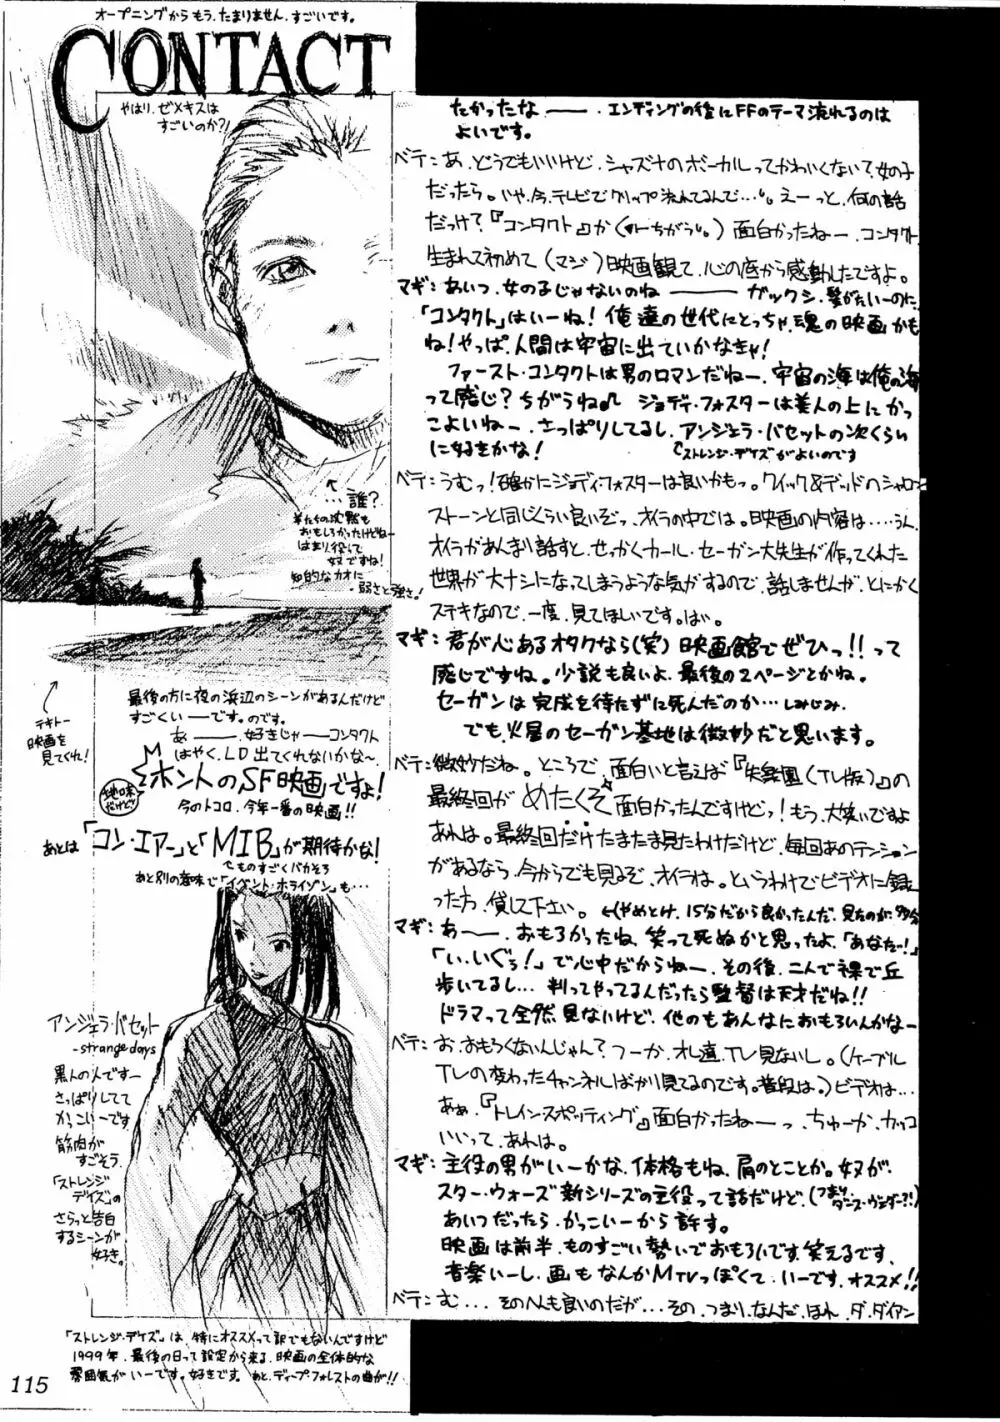 オープニングからもう、たまりません。すごいです。
CONTACT
やはり、ゼメキスは
すごいのか?!
↑
…誰?
羊たちの沈黙も
おもしろかったけどねー
はまり役して
奴ですね!
知的なカオに
弱さと強さ!
テキトー
映画を
見てくれ!
最後の方に夜の浜辺のシーンがあるんだけど
すごくいーです。のです。
あー、好きじゃーコンタクト
はやく、LD出てくれないかな〜。
ホントのSF映画ですよ!
地味だけど
今のトコロ、今年一番の映画!!
あとは「コン・エアー」と「MIB」が期待かな!
ものすごくバカそう
あと別の意味で「イベント・ホライゾン」も…
アンジェラ・バセット
-strange days
黒人の人ですー
さっぱりしてて
かっこいーです
筋肉が
すごそう。
「ストレンジ
デイズ」の
さらっと告白
するシーンが
好き。
「ストレンジ・デイズ」は、特にオススメって訳でもないんですけど
1999年、最後の日って設定から来る、映画の全体的な
雰囲気がいーです。好きです。あと、ディープ・フォレストの曲が!!
115
たかったなー。エンディングの後にFFのテーマ流れるのは
よいです。
ベテ:あ、どうでもいいけど、シャズナのボーカルってかわいくない?女の子
だったら。いや、今、テレビでクリップ流れてるんで…。えーっと、何の話
だっけ?『コンタクト』か(←ちがう。)面白かったねー、コンタクト
生まれて初めて(マジ)映画観て、心の底から感動したですよ。
マギ:あいつ、女の子じゃないのねー ガックシ、髪がたいーのに
「コンタクト」はいーね!俺達の世代にとっちゃ、魂の映画かも
ね!やっぱ、人間は宇宙に出ていかなきゃ!
ファースト・コンタクトは男のロマンだねー、宇宙の海は俺の海
って感じ?ちがうね♪ ジョディ・フォスターは美人の上にかっ
こよいねー、さっぱりしてるし、アンジェラ・バセットの次くらい
に好きかな!
「ストレンジ・デイズ」がよいのです
ベテ:うむっ!確かにジョディ・フォスターは良いかもっ。クイック&デッドのシャロン
ストーンと同じくらい良いぞっ、オイラの中では。映画の内容は……うん、
オイラがあんまり話すと、せっかくカール・セーガン大先生が作ってくれた
世界が大ナシになってしまうような気がするので、話しませんが、とにかく
ステキなので、一度、見てほしいです。はい。
マギ:君が心あるオタクなら(笑)映画館でぜひっ!!って
感じですね。小説も良いよ、最後の2ページとかね。
セーガンは完成を待たずに死んだのか…しみじみ、
でも、火星のセーガン基地は微妙だと思います。
ベテ:微妙だね。ところで、面白いと言えば『失楽園(TV版)』の
最終回がめたくそ面白かったんですけどっ!もう、大笑いですよ
あれは。最終回だけたまたま見たわけだけど、毎回あのテンション
があるなら、今からでも見るぞ、オイラは。というわけでビデオに録
った方、貸して下さい。←(やめとけ、15分だから良かったんだ、見たのが
マギ:あー、おもろかったね、笑って死ぬかと思ったよ、「あなたっ!」
「い、いくぅ!」で心中だからねー、その後、二人で裸で丘
歩いてるし…判ってやってるんだったら監督は天才だね!!
ドラマって全然見ないけど、他のもあんなにおもろいんかなー
ベテ:お、おもろくないんじゃん?つーか、オレ達、TV見ないし。(ケーブル
TVの変わったチャンネルばかり見てるのです。普段は。)ビデオは…
あぁ、『トレイン・スポッティング』面白かったねーっ、ちゅーか、カッコ
いいって、あれは。
マギ:主役の男がいーかな、体格もね、肩のとことか。奴が、
スター・ウォーズ新シリーズの主役って話だけど、
あいつだったら、かっこいーから許す。
映画は前半、ものすごい勢いでおもろいです、笑えるです、
音楽いーし、画もなんかMTVっぽくて、いーです、オススメ!!
ベテ:む…、そのへんも良いのだが…その、つまり、なんだ、ほれ、ダ、ダイアン